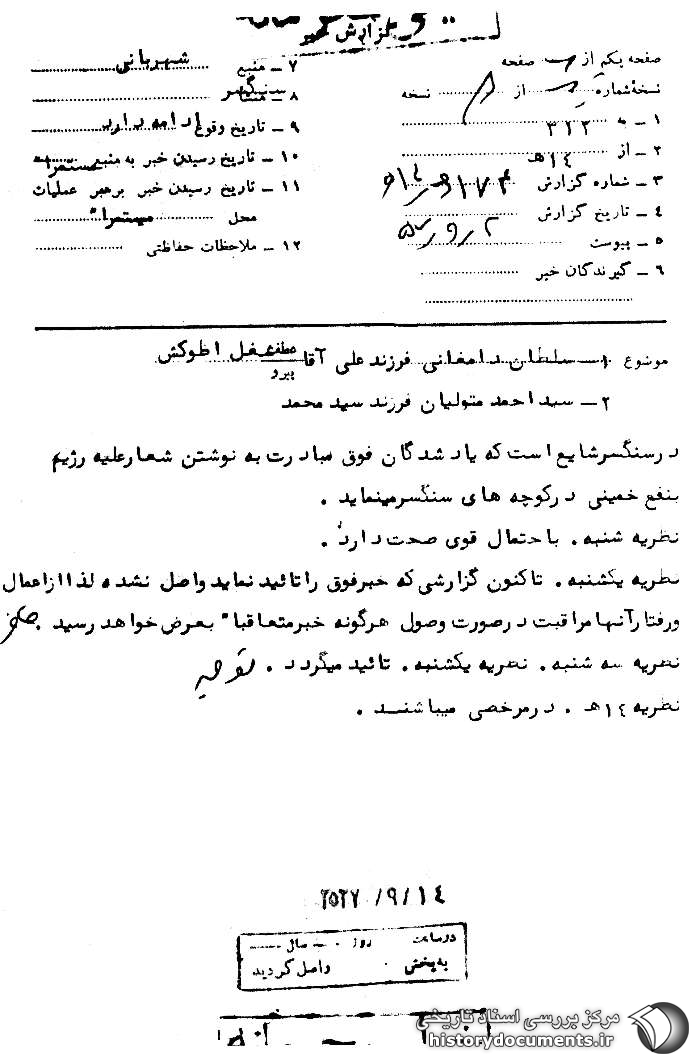 گزارش خبر
صفحه یکم از صفحه
نسخهٔ شماره از نسخه
۱ ـ به ۳۱۲
۲ ـ از ۱۴هـ
۳ ـ شماره گزارش
۴ ـ تاریخ گزارش
۵ ـ پیوست
۶ ـ گیرندگان خبر
۷ ـ منبع شهربانی
۸ ـ منشاء سنگسر
۹ ـ تاریخ وقوع ادامه دارد
۱۰ ـ تاریخ رسیدن خبر به منبع مستمرا"
۱۱ ـ تاریخ رسیدن خبر برهبر عملیات
محل مستمرا"
۱۲ ـ ملاحظات حفاظتی
موضوع ۱ـ سلطان دامغانی فرزند علی آقا شغل اطوکش
۲ ـ سید احمد متولیان فرزند سید محمد
درسنگسر شایع است که یاد شدگان فوق مبادرت به نوشتن شعار علیه رژیم
بنفع خمینی درکوچه های سنگسر مینماید .
نظریه شنبه . باحتمال قوی صحت دارد .
نظریه یکشنبه . تاکنون گزارشی که خبر فوق را تائید نماید واصل نشده لذا ازاعمال
ورفتار آنها مراقبت درصورت وصول هرگونه خبر متعاقبا" بعرض خواهد رسید .
نظریه سه شنبه . نظریه یکشنبه . تائید میگردد .
نظریه ۱۴هـ . درمرخصی میباشند .
۲۵۳۷/۹/۱۴
در ساعت روز سال
به بخش واصل گردید
مرکز بررسی اسناد تاریخی
historydocuments.ir